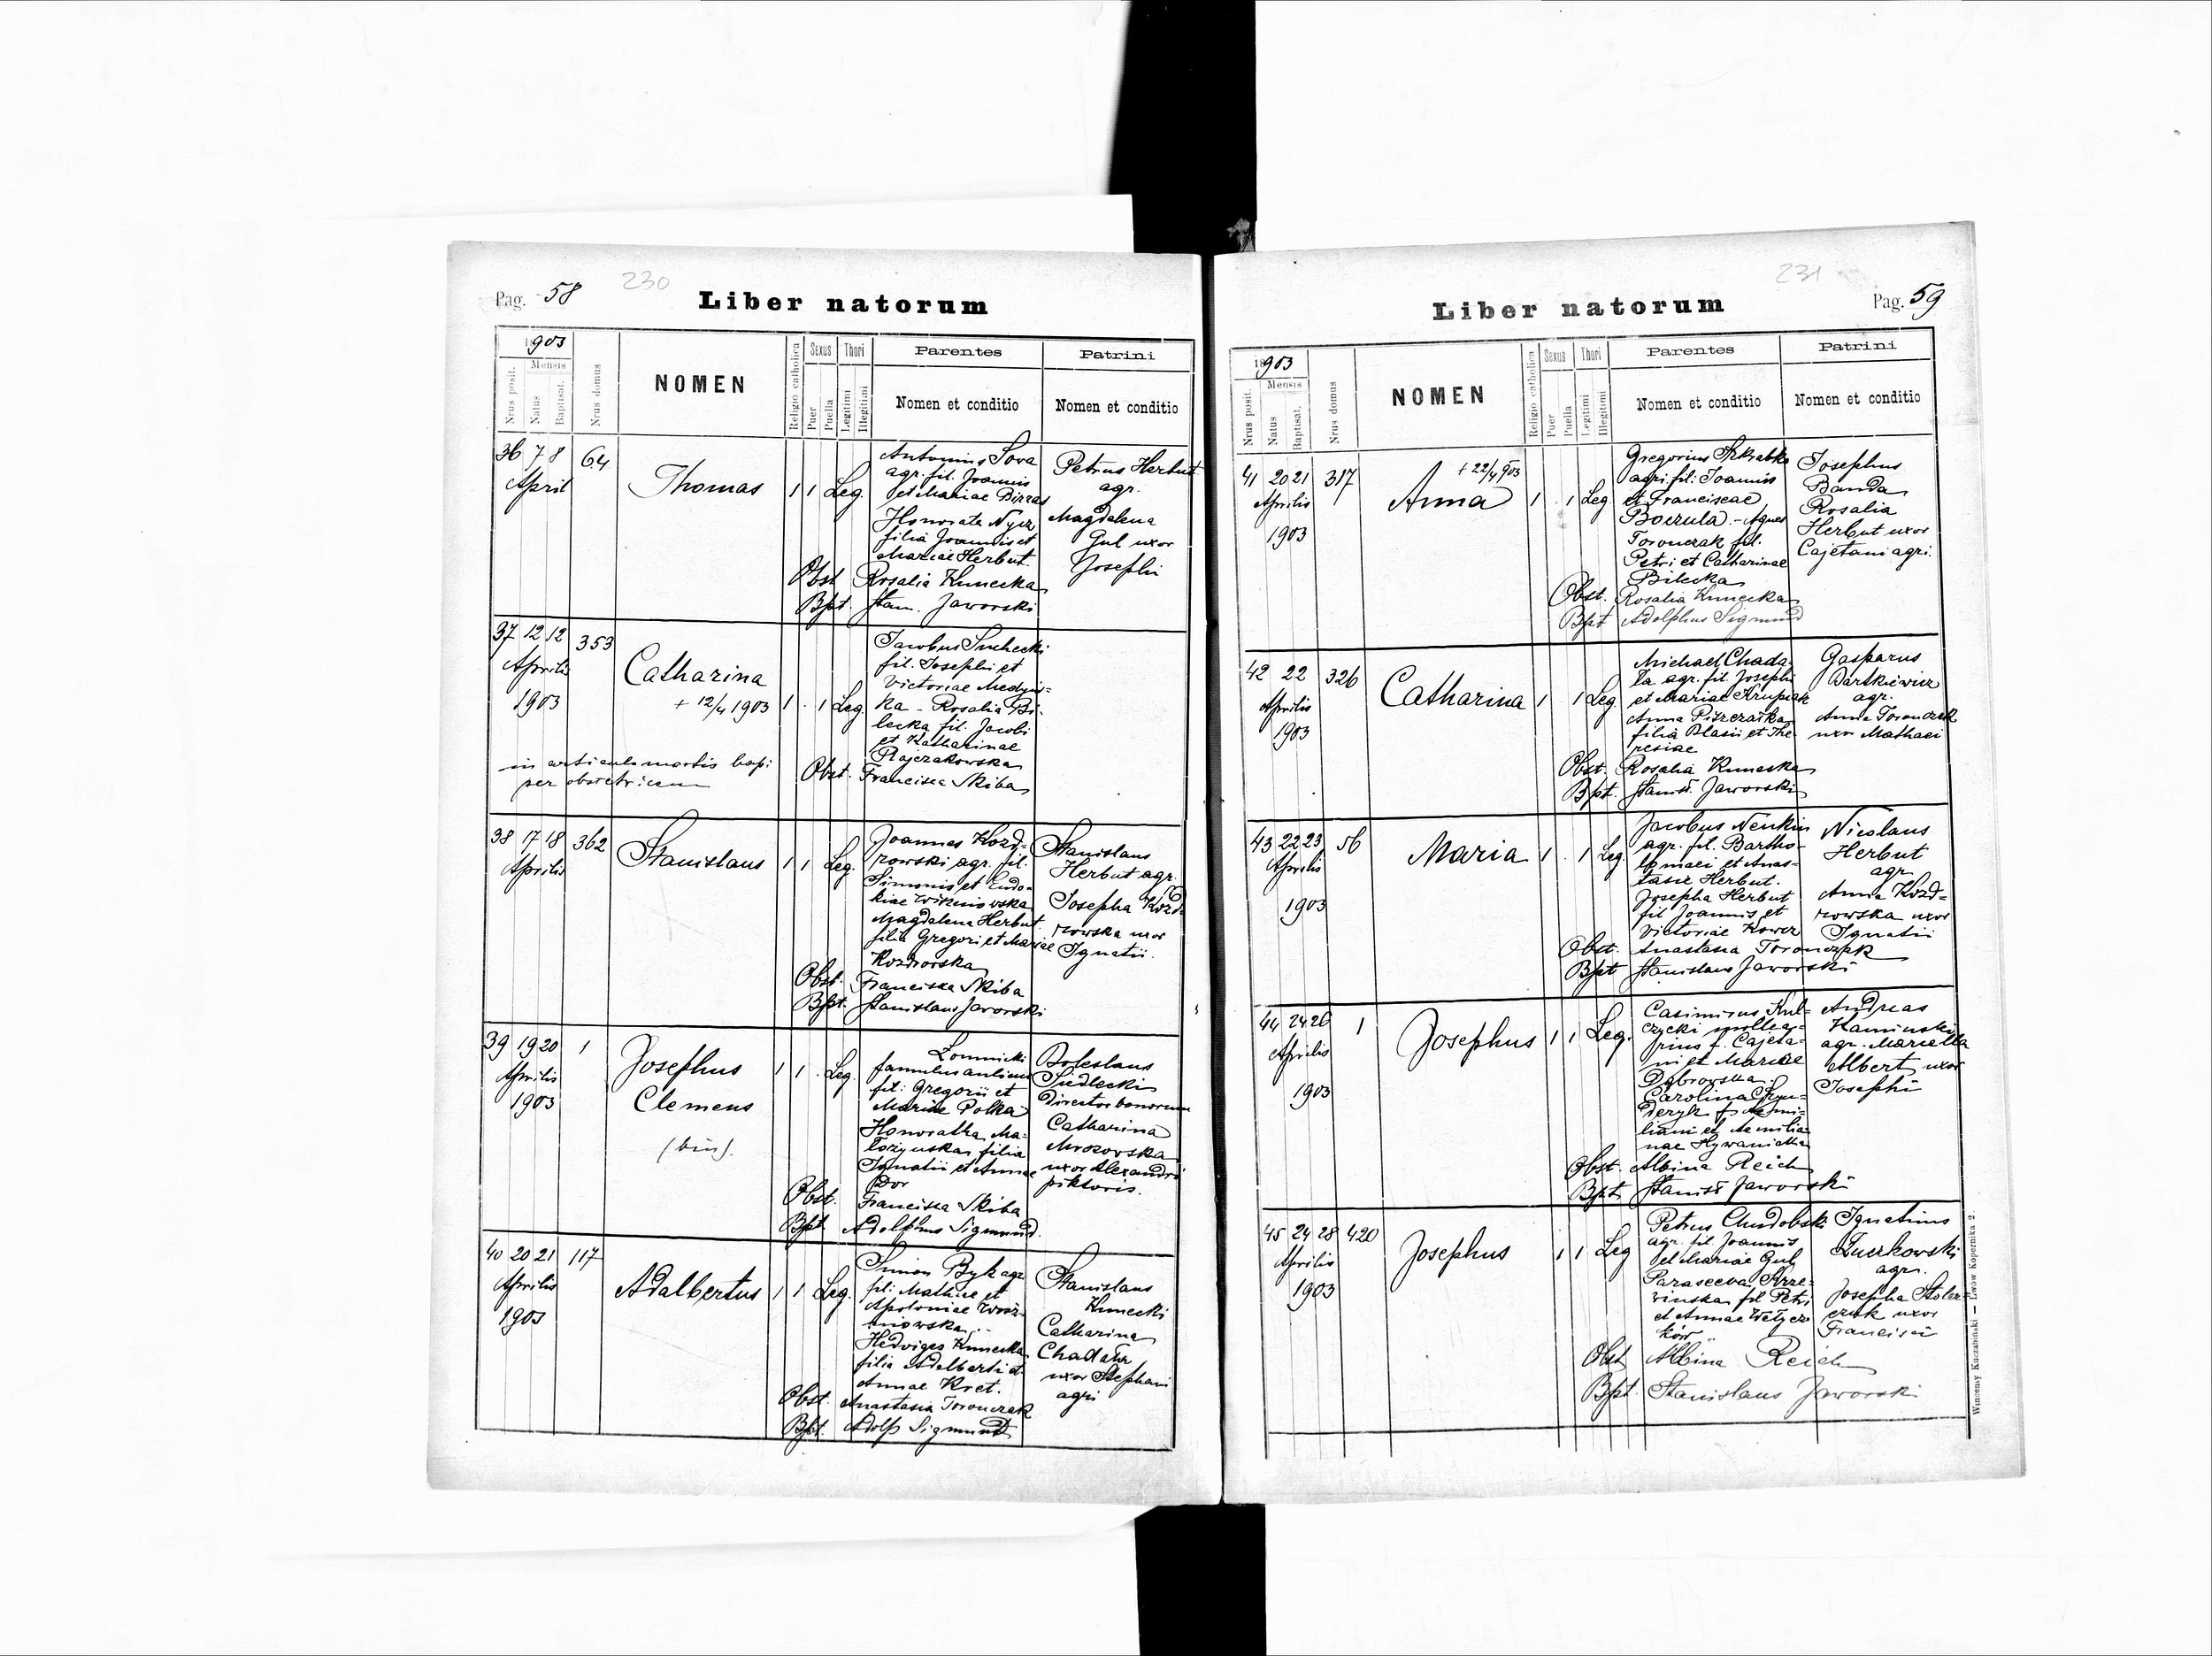 230
Pag. 58
Liber natorum
1903
Nrus posit.
Mensis
Natus
Baptisat.
Nrus domus
NOMEN
Religio catholica
Sexus
Puer
Puella
Thori
Legitimi
Illegitimi
Parentes
Nomen et conditio
Patrini
Nomen et conditio
36 7 8 64
April
Thomas
1 1 Leg.
Antonius Sova
agr. fil. Joannis
et Mariae
Honorata Nycz
filia Joannis et
Mariae Herbut.
Petrus Herbut
agr.
Magdalena
Gul uxor
Josephi
Obst. Rosalia Kunecka
Bpt. Stan. Jaworski
37 12 12 353
Aprilis
1903
Catharina
+ 12/4 1903
1 . 1 Leg.
Jacobus Suchecki
fil. Josephi et
Victoriae Medyń=
ka - Rosalia Bi-
lecka fil. Jacobi
et Katharinae
Rajczakowska
in articulo mortis bapt.
per obstetricem
Obst. Francisca Skiba
38 17 18 362
Aprilis
Stanislaus
1 1 Leg.
Joannes Kozd=
rowski agr. fil.
Simonis et Eudo-
kiae
Magdalena Herbut
filia Gregori et Mariae
Kozdrowska
Stanislaus
Herbut agr.
Josepha Kozd-
rowska uxor
Ignatii.
Obst. Franciska Skiba
Bpt. Stanislaus Jaworski
39 19 20 1
Aprilis
1903
Josephus
Clemens
(bin).
1 1 . Leg.
Łomnicki
famulus aulicus
fil: Gregorii et
Mariae Polka
Honoratha Ma-
łożyńska filia
Ignatii et Annae
Dor
Boleslaus
Siedlecki
Director bonorum
Catharina
Mrozowska
uxor Alexandri
piktoris.
Obst. Francisca Skiba
Bpt. Adolphus Sigmund.
40 20 21 117
Aprilis
1903
Adalbertus
1 1 Leg.
Simon Byk agr.
fil: Mathiae et
Apoloniae Woź-
niowska
Hedviges Kunecka
filia Adalberti et
Annae Kret.
Stanislaus
Kunecki
Catharina
uxor Stephani
agri
Obst. Anastasia Toronczak
Bpt. Adolf Sigmund
231
Liber natorum
Pag. 59
1903
Nrus posit.
Mensis
Natus
Baptisat.
Nrus domus
NOMEN
Religio catholica
Sexus
Puer
Puella
Thori
Legitimi
Illegitimi
Parentes
Nomen et conditio
Patrini
Nomen et conditio
41 20 21 317
Aprilis
1903
+ 22/4 903
Anna
1 . 1 Leg
Gregorius
agri. fil: Joannis
et Franciscae
Boczula - Agnes
Toronczak fil.
Petri et Catharinae
Bilecka
Josephus
Banda
Rosalia
Herbut uxor
Cajetani agri.
Obst. Rosalia Kunecka
Bpt Adolphus Sigmund
42 22 326
Aprilis
1903
Catharina
1 . 1 Leg
Michael Chada-
ła agr. fil. Josephi
et Mariae Krupiak
Anna
filia Blasii et The
resiae
Gasparus
Bartkiewicz
agr.
Anna Toronczak
uxor Mathaei
Obst. Rosalia Kunecka
Bpt. Stanisł. Jaworski
43 22 23 56
Aprilis
1903
Maria
1 . 1 Leg
Jacobus Nenkin
agr. fil. Bartho-
lomaei et Anas-
tasiae Herbut.
Josepha Herbut
fil Joannis et
Victoriae Kower
Nicolaus
Herbut
agr
Anna Kozd=
rowska uxor
Ignatii
Obst. Anastasia Toronczak
Bpt Stanislaus Jaworski
44 24 26 1
Aprilis
1903
Josephus
1 1 Leg.
Casimirus Kul=
czycki
f. Cajeta-
ni et Mariae
Dąbrowska.
Carolina
deryk f. Aemi-
liani et Aemilia-
nae
Andreas
Kaminski
agr. Mariella
Albert uxor
Josephi
Obst. Albina Reich
Bpt. Stanisł Jaworski
45 24 28 420
Aprilis
1903
Josephus
1 1 Leg
Petrus Chudobski
agr. fil. Joannis
et Mariae Gul
Parasceva Strze-
wińska fil Petri
et Annae Wełycz
ków
Ignatius
Żurkowski
agr.
Josepha
uxor
Francisci
Obst. Albina Reich
Bpt. Stanislaus Jaworski
Wincenty Kuczabiński — Lwów Kopernika 2.